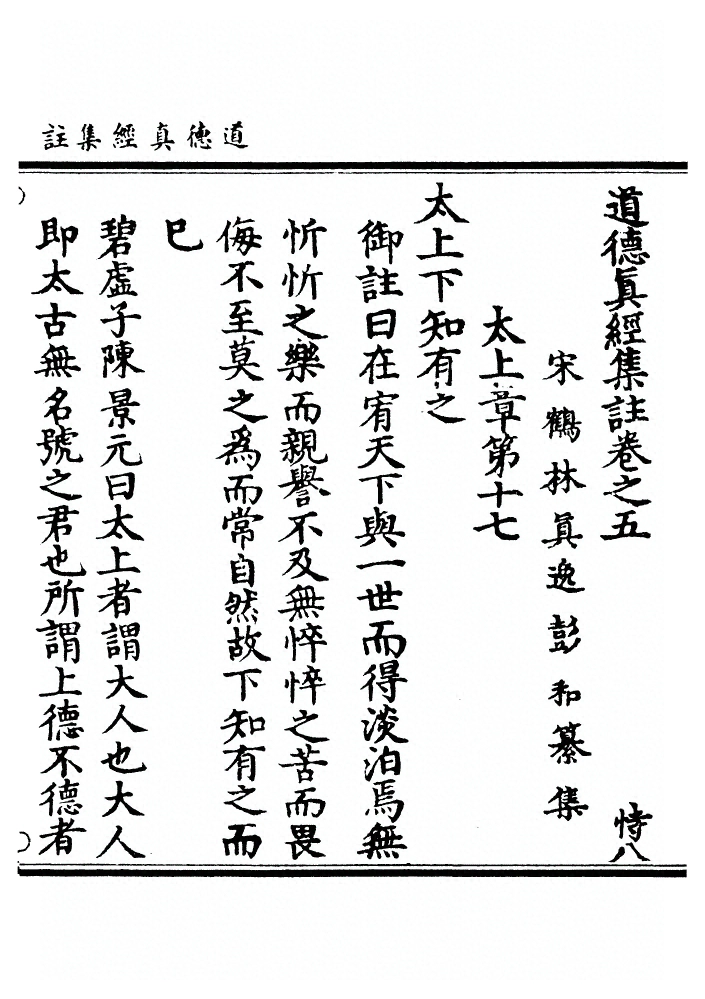 道德真經集註
道德眞經集註卷之五 恃八
宋鶴林眞逸彭耜纂集
太上章第十七
太上下知有之
御註曰在宥天下與一世而得淡泊焉無
忻忻之樂而親譽不及無悴悴之苦而畏
侮不至莫之爲而常自然故下知有之而
已
碧虛子陳景元曰太上者謂大人也大人
即太古無名號之君也所謂上德不德者